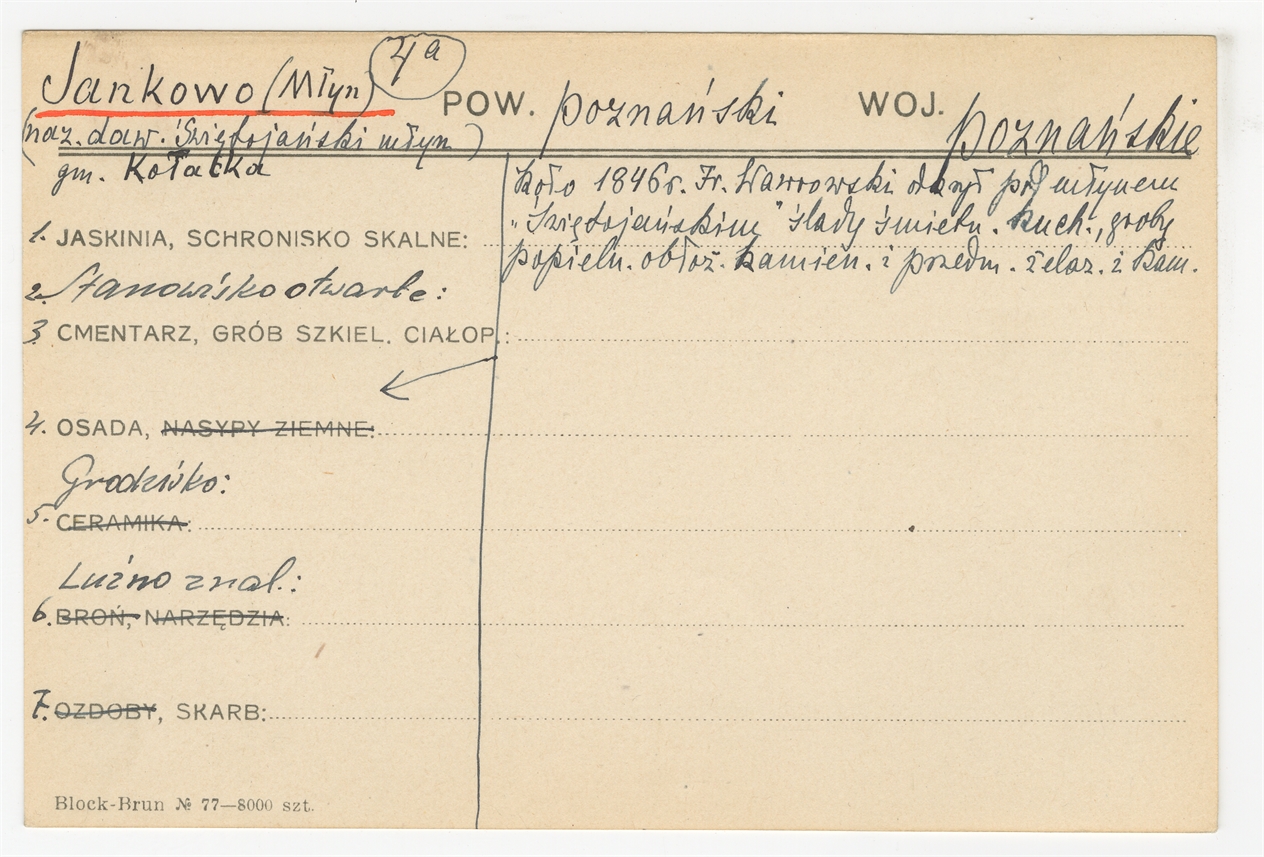 Jankowo (Młyn) 4a POW. poznański WOJ. poznańskie
(naz. daw. Świętojański młyn)
gm. Kołatka
Koło 1846r. Fr. Wawrowski odkrył pod młynem
"Świętojańskim" ślady śmietn. kuch., groby
popieln. obłoż. kamien. i przedm. żelaz. i kam.
1. JASKINIA, SCHRONISKO SKALNE:
2. Stanowisko otwarte:
3. CMENTARZ, GRÓB SZKIEL. CIAŁOP.:
4. OSADA, NASYPY ZIEMNE:
Grodzisko:
5. CERAMIKA:
Luźno znal.:
6. BROŃ, NARZĘDZIA:
7. OZDOBY, SKARB:
Block-Brun № 77—8000 szt.